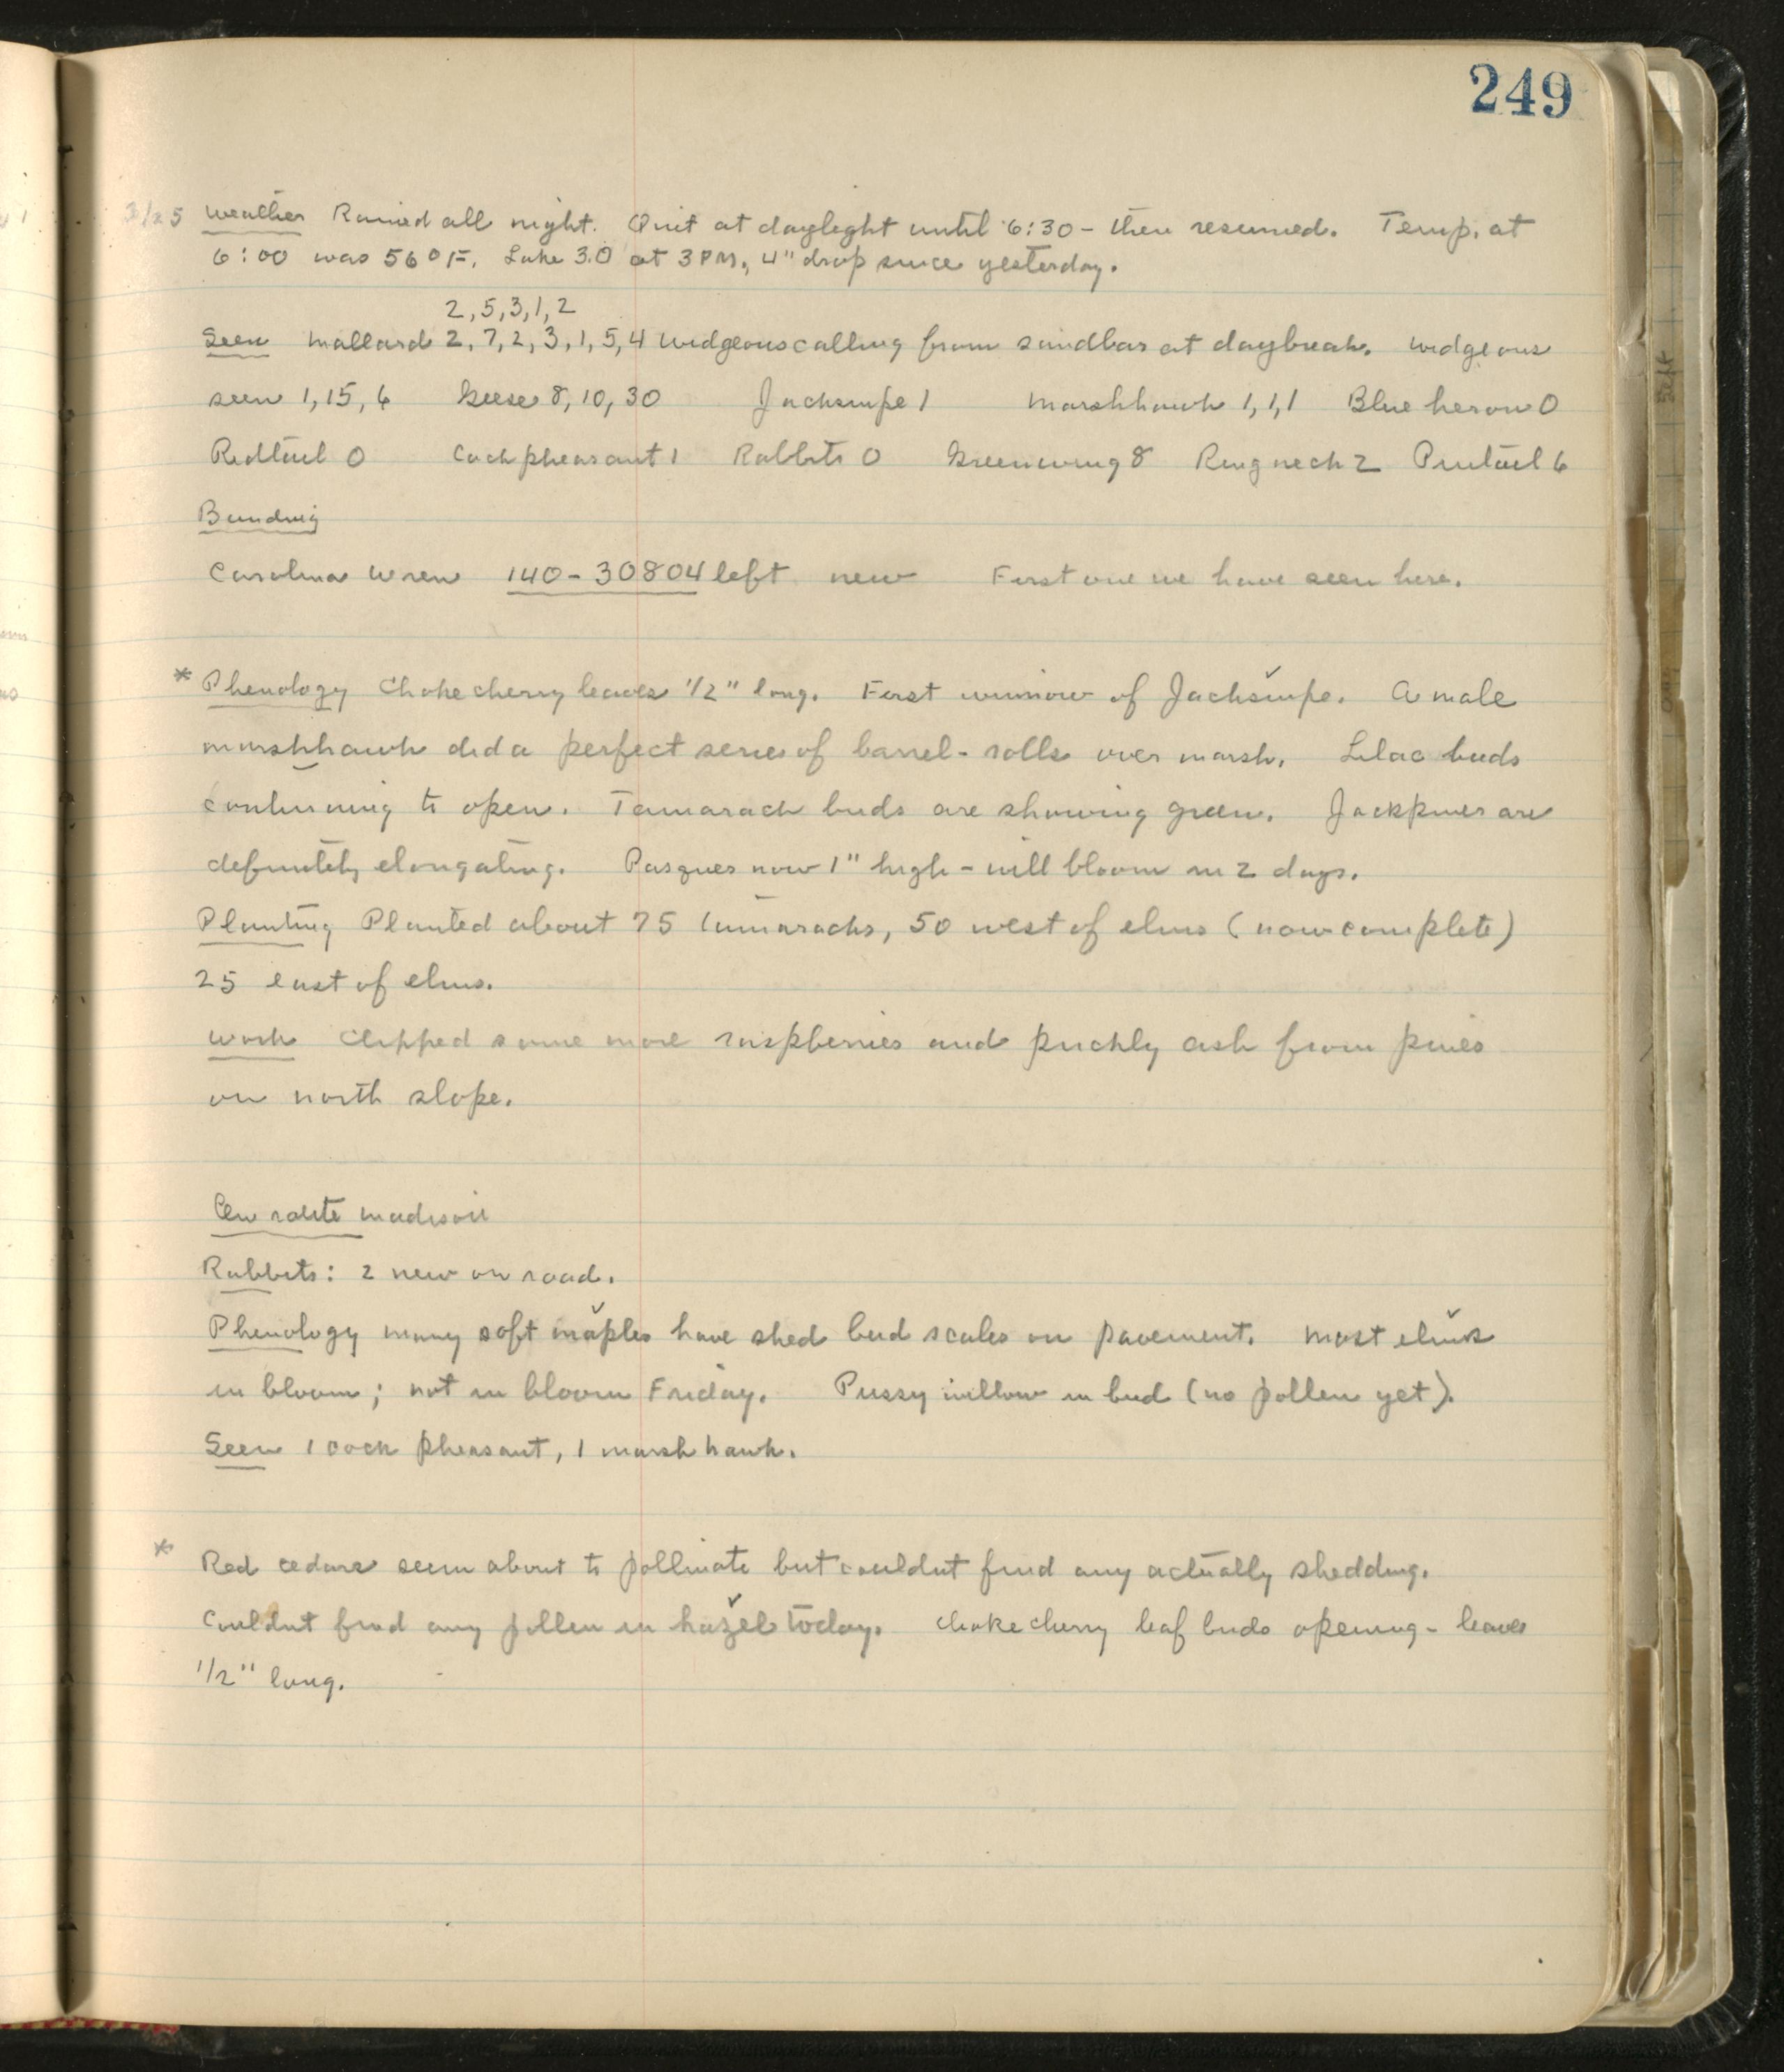 249
3/25 Weather Rained all night. Quit at daylight until 6:30 - then resumed. Temp. at
6:00 was 56°F. Lake 3.0 at 3 PM, 4" drop since yesterday.
2, 5, 3, 1, 2
Seen Mallard 2, 7, 2, 3, 1, 5, 4 Widgeons calling from sandbar at daybreak. Widgeons
seen 1, 15, 6 Geese 8, 10, 30 Jacksnipe 1 Marshhawk 1, 1, 1 Blue heron 0
Redtail 0 Cock pheasant 1 Rabbits 0 Greenwing 8 Ringneck 2 Pintail 6
Banding
Carolina Wren 140-30804 left new First one we have seen here.
* Phenology Chokecherry leaves 1/2" long. First winnow of Jacksnipe. A male
marshhawk did a perfect series of barrel-rolls over marsh. Lilac buds
continuing to open. Tamarack buds are showing green. Jackpines are
definitely elongating. Pasques now 1" high - will bloom in 2 days.
Planting Planted about 75 tamaracks, 50 west of elms (now complete)
25 east of elms.
Work Clipped some more raspberries and prickly ash from pines
on north slope.
En route Madison
Rabbits: 2 new on road.
Phenology Many soft maples have shed bud scales on pavement. Most elms
in bloom; not in bloom Friday. Pussy willow in bud (no pollen yet).
Seen 1 cock pheasant, 1 marsh hawk.
* Red cedars seem about to pollinate but couldnt find any actually shedding.
Couldnt find any pollen in hazel today. Chokecherry leaf buds opening - leaves
1/2" long.